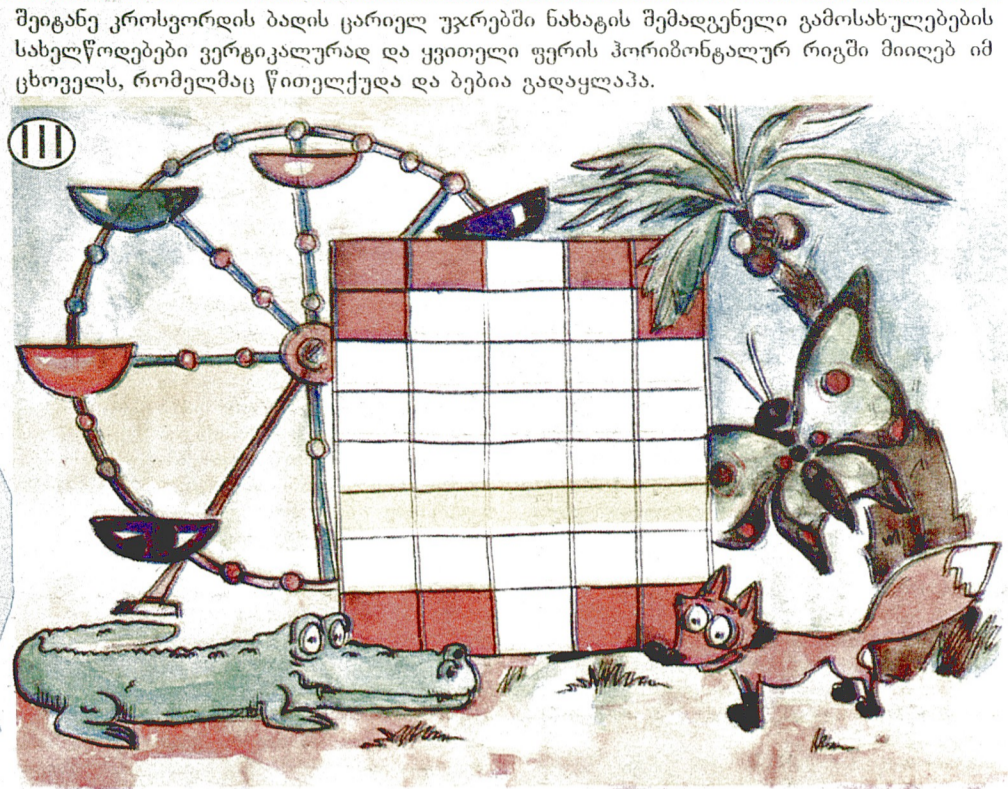 შეიტანე კროსვორდის ბადის ცარიელ უჯრებში ნახატის შემადგენელი გამოსახულებების
სახელწოდებები ვერტიკალურად და ყვითელი ფერის ჰორიზონტალურ რიგში მიიღებ იმ
ცხოველს, რომელმაც წითელქუდა და ბებია გადაყლაპა.
III